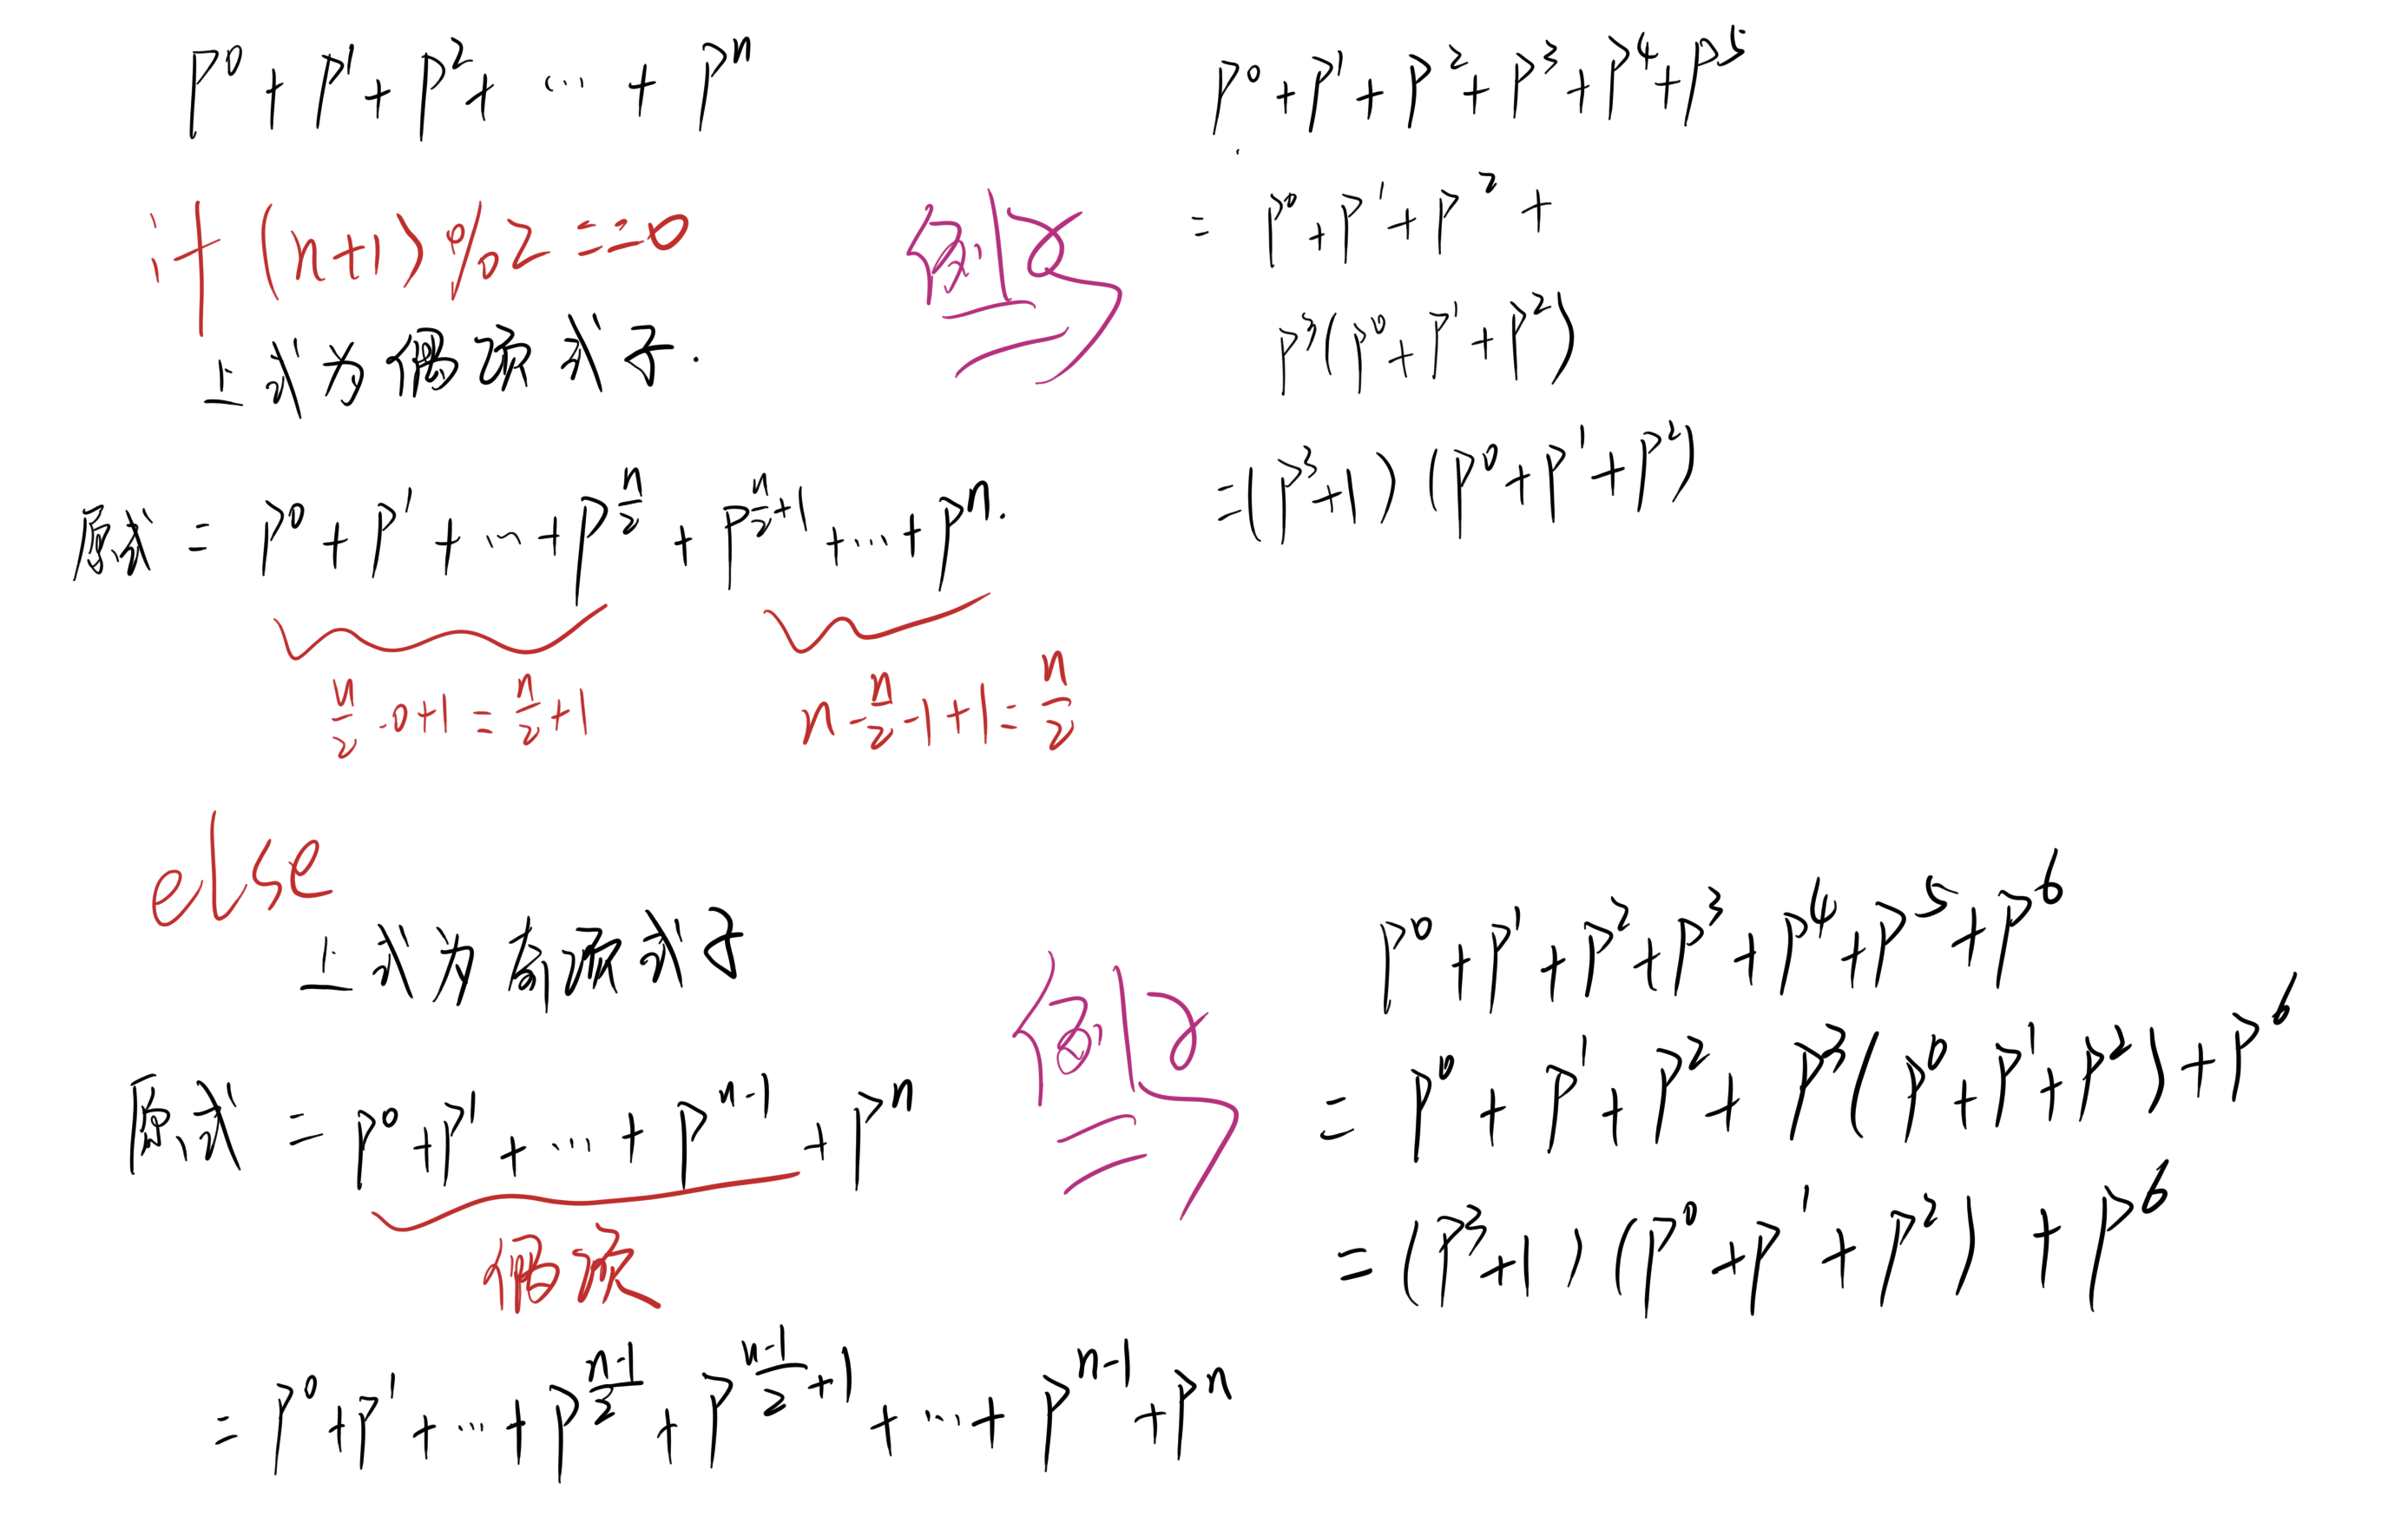 P⁰ + P¹ + P² + … + Pⁿ
if (n+1) % 2 == 0
上式为偶项式子.
原式 = P⁰ + P¹ + … + P^(n/2) + P^(n/2+1) + … + Pⁿ.
n/2 - 0 + 1 = n/2 + 1
n - n/2 - 1 + 1 = n/2
例
P⁰ + P¹ + P² + P³ + P⁴ + P⁵
= P⁰ + P¹ + P² +
P³(P⁰ + P¹ + P²)
= (P³+1)(P⁰ + P¹ + P²)
else
上式为奇项式子
原式 = P⁰ + P¹ + … + P^(n-1) + Pⁿ
偶项
= P⁰ + P¹ + … + P^((n-1)/2) + P^((n-1)/2+1) + … + P^(n-1) + Pⁿ
例
P⁰ + P¹ + P² + P³ + P⁴ + P⁵ + P⁶
= P⁰ + P¹ + P² + P³(P⁰ + P¹ + P²) + P⁶
= (P³+1)(P⁰ + P¹ + P²) + P⁶